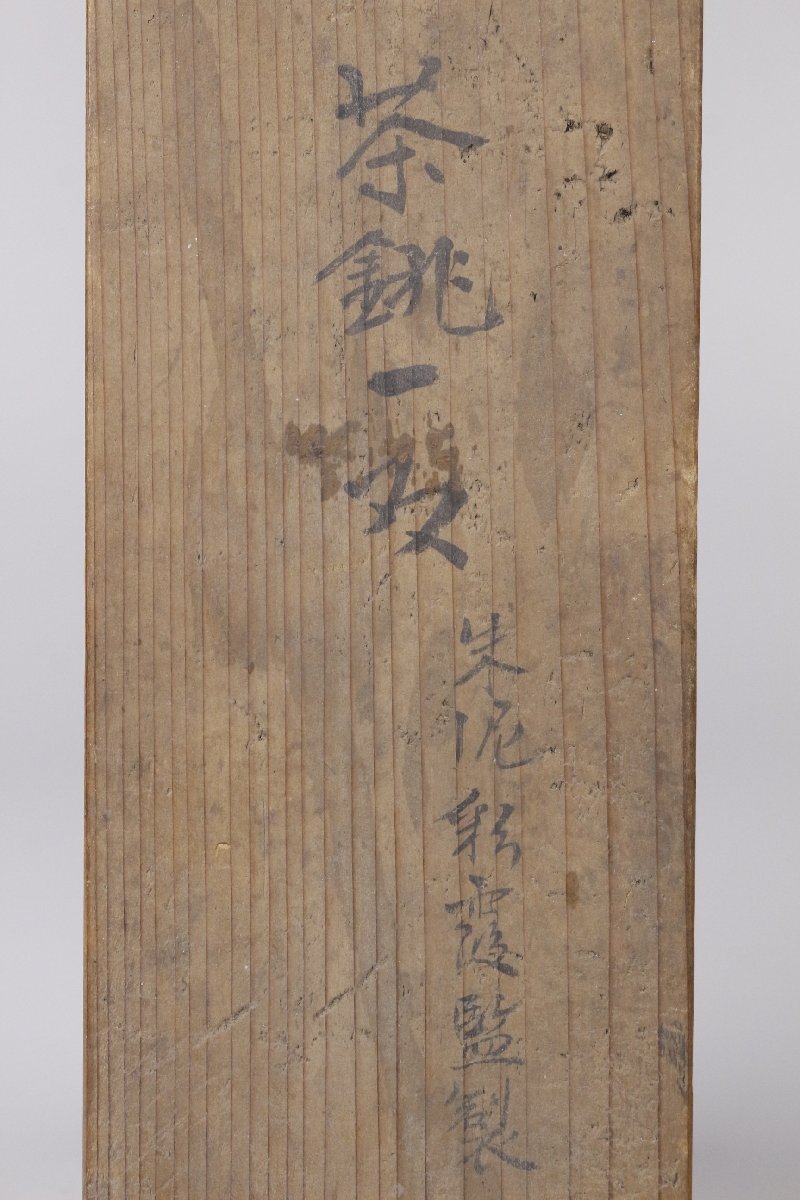 茶銚一双
朱泥彩霞監製